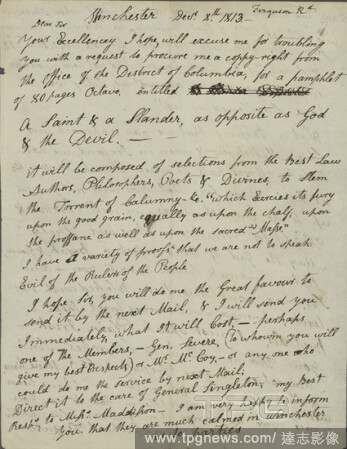 Ferguson Rd
Winchester Decr. 8th 1813
Dear Sir
Your Excellency I hope will excuse me for troubling
you with a request to procure me a coppy-right from
the Office of the District of Columbia, for a pamphlet
of 80 pages Octavo, entitled
A Saint & a Slander, as opposite as God
& the Devil.—
it will be composed of selections from the Best Law
Authors, Philosophers, Poets & Divines, to Stem
the Torrent of Calumny &c. "which Exercies its fury
upon the good grain, equally as upon the chaff, upon
the proffane as well as upon the sacred"
I have a variety of proofs "that we are not to speak
Evil of the Rulers of the People
I hope Sir, you will do me the Great favour to
send it by the next Mail, & I will send you
Immediately, what it will Cost — perhaps
one of the Members, — Gen. Severe, (to whom you will
give my best Respects) or Mr. Mc Coy — or any one who
could do me the service by next Mail;
Direct it to the care of General Singleton, my Best
Respts. to Maddison — I am very happy to inform
You that they are much calmed in winchester
parties
www.tpgnews.com 達志影像